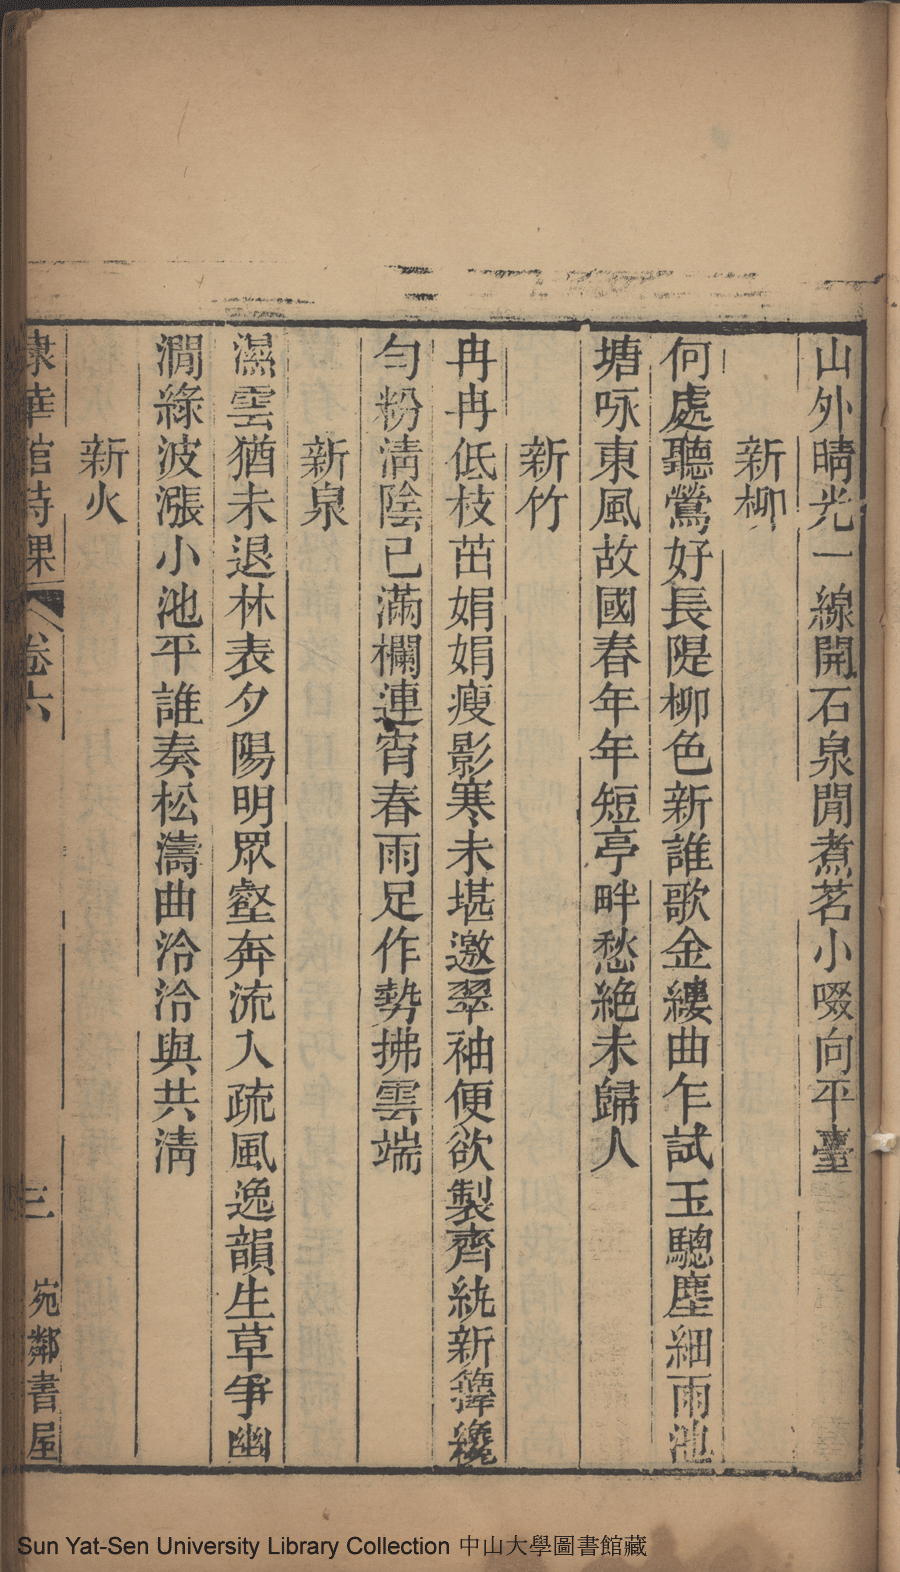 山外晴光一線開石泉閒煮茗小啜向平臺
新柳
何處聽鶯好長隄柳色新誰歌金縷曲乍試玉驄塵細雨池
塘咏東風故國春年年短亭畔愁絶未歸人
新竹
冉冉低枝茁娟娟瘦影寒未堪邀翠袖便欲製齊紈新籜纔
勻粉淸陰已滿欄連宵春雨足作勢拂雲端
新泉
濕雲猶未退林表夕陽明眾壑奔流入疏風逸韻生草爭幽
澗綠波漲小池平誰奏松濤曲泠泠與共淸
新火
棣華館詩課 卷六
三
宛鄰書屋
Sun Yat-Sen University Library Collection 中山大學圖書館藏